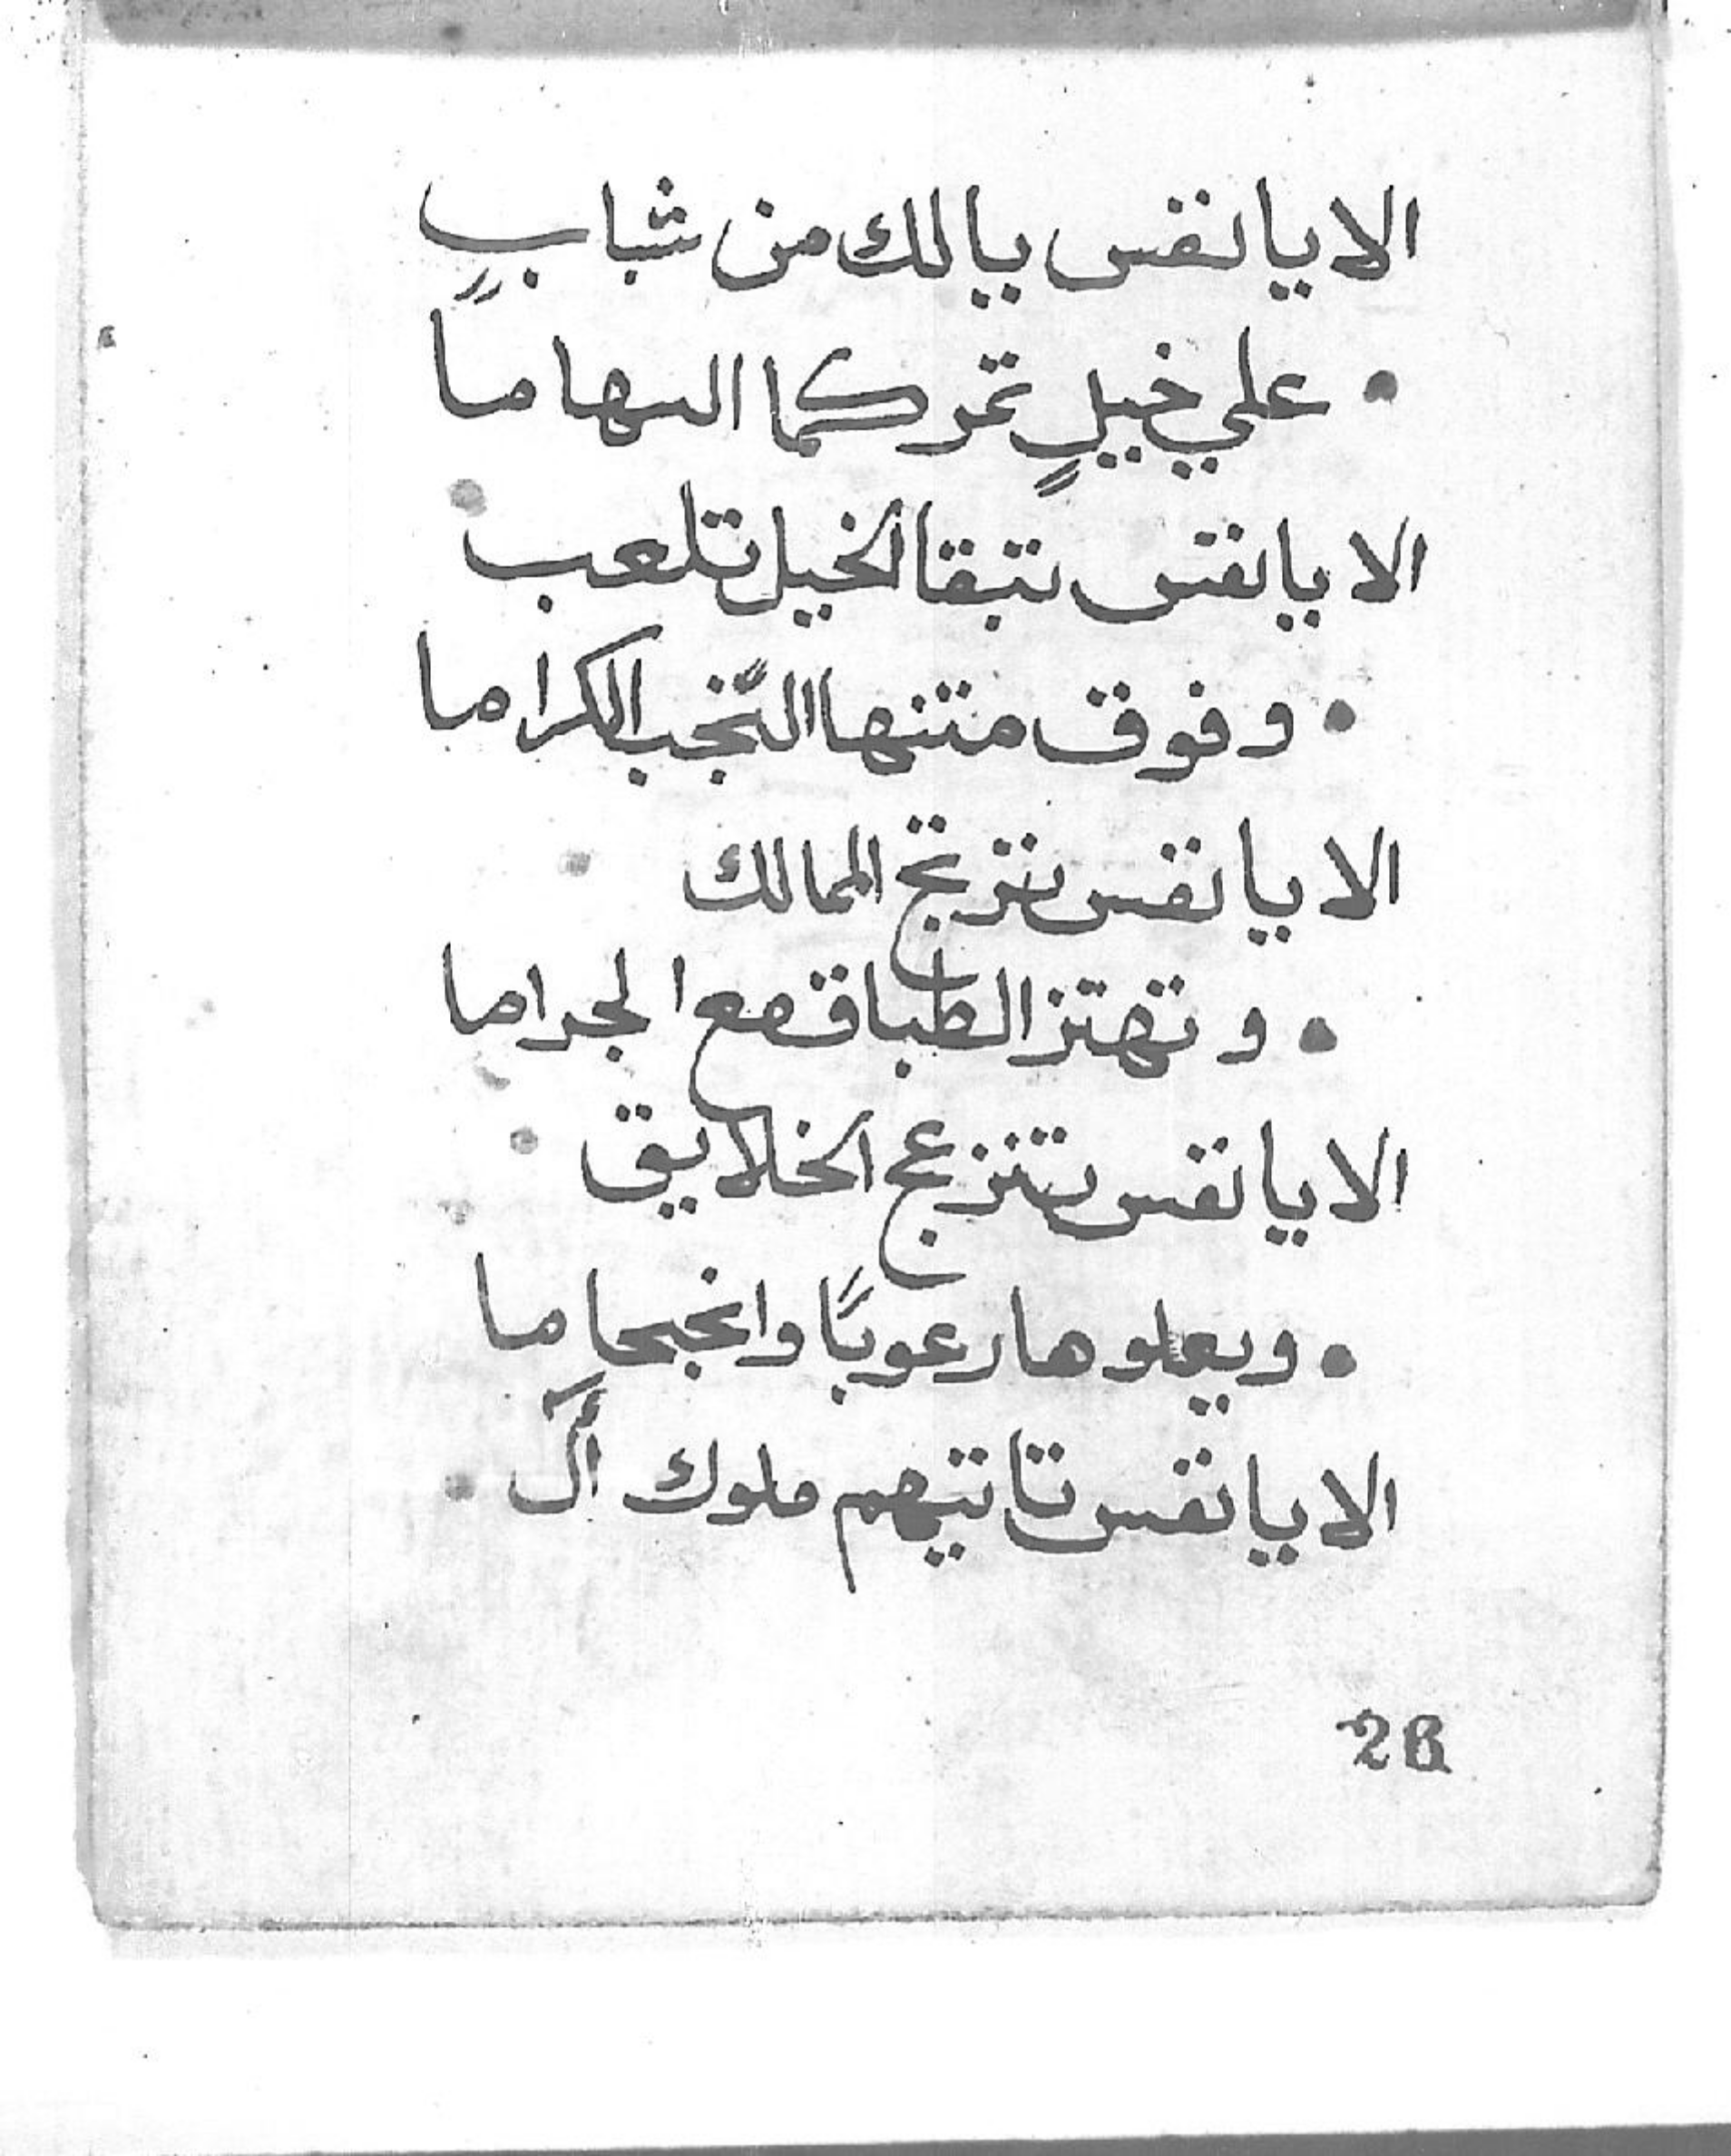 الا يا نفس يا لك من شبابٍ
• علي خيلٍ تمر كما السهاما
الا يا نفس تبقا الخيل تلعب
• وفوق متنها النّجب الكراما
الا يا نفس ترتج الممالك
• وتهتز الطباق مع الجراما
الا يا نفس تنزعج الخلايق •
• ويعلوها رعوبًا وانجحاما
الا يا نفس تاتيهم ملوك أل •
26